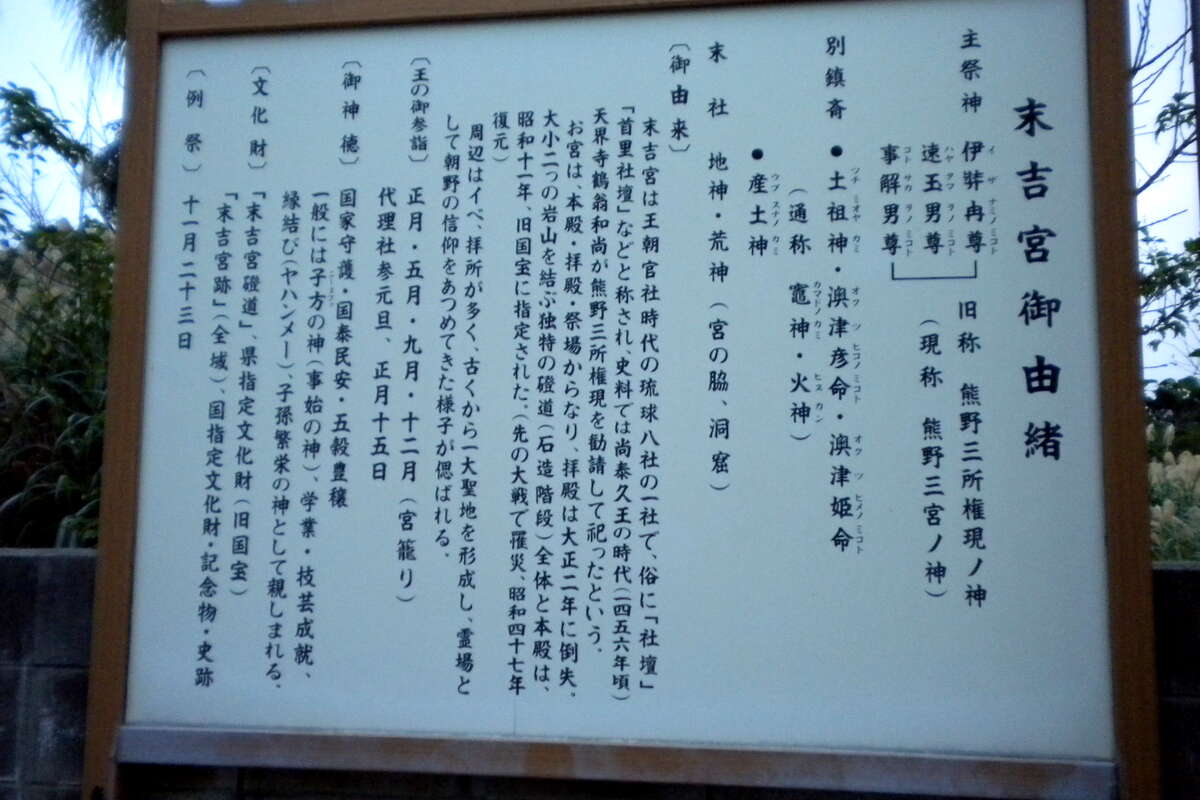 末吉宮御由緒
主祭神 伊弉冉尊
イ ザ ナミノ ミコト
速玉男尊
ハヤ タマ ヲノ ミコト
事解男尊
コト サカ ヲノ ミコト
旧称 熊野三所権現ノ神
(現称 熊野三宮ノ神)
別鎮斎 ●土祖神・澳津彦命・澳津姫命
ツチ ミオヤ カミ オフ ツ ヒコノ ミコト オク ツ ヒメノ ミコト
(通称 竈神・火神)
カマドノカミ ヒヌカン
●産土神
ウブスナノカミ
末社 地神・荒神(宮の脇、洞窟)
〔御由来〕
末吉宮は王朝官社時代の琉球八社の一社で、俗に「社壇」
「首里社壇」などと称され、史料では尚泰久王の時代(一四五六年頃)
天界寺鶴翁和尚が熊野三所権現を勧請して祀ったという。
お宮は、本殿・拝殿・祭場からなり、拝殿は大正二年に倒失。
大小二つの岩山を結ぶ独特の磴道(石造階段)全体と本殿は、
昭和十一年、旧国宝に指定された。(先の大戦で罹災、昭和四十七年
復元)
周辺はイベ、拝所が多く、古くから一大聖地を形成し、霊場と
して朝野の信仰をあつめてきた様子が偲ばれる。
〔王の御参詣〕 正月・五月・九月・十二月(宮籠り)
代理社参元旦、正月十五日
〔御神徳〕 国家守護・国泰民安・五穀豊穣
一般には子方の神(事始の神)、学業・技芸成就、
縁結び(ヤハンメー)、子孫繁栄の神として親しまれる。
〔文化財〕 「末吉宮磴道」、県指定文化財(旧国宝)
「末吉宮跡」(全域)、国指定文化財・記念物・史跡
〔例祭〕 十一月二十三日